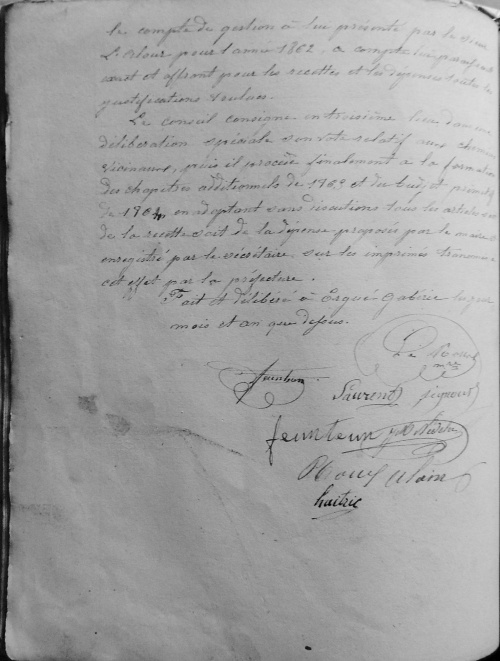 le compte de gestion à lui présenté par le sieur
pour l'année 1862, a compte
et offrant pour les recettes et les dépenses toutes les
justifications voulues.
Le conseil consigne en troisième lieu dans une
délibération spéciale son vote relatif aux chemins
vicinaux, puis il procède finalement à la formation
des chapitres additionnels de 1863 et du budget primitif
de 1864, en adoptant sans discutions tous les articles soit
de la recette soit de la dépense proposés par le maire et
enregistré par le sécrétaire, sur les imprimés transmis à
cet effet par la préfecture.
Fait et délibéré à Ergué Gabéric les jour
mois et an que dessus.
Le
Laurent
feunteun
Alain